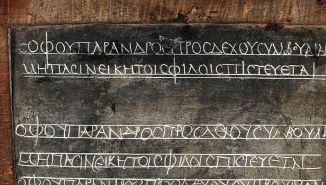 ϹΟΦΟΥΠΑΡΑΝΔΡΟϹΠΡΟϹΔΕΧΟΥϹΥΜΒΟΥΛΙ
ΜΗΠΑϹΙΝΕΙΚΗΤΟΙϹΦΙΛΟΙϹΠΙϹΤΕΥΕΤΑΙ
ΟΦΟΥΠΑΡΑΝΔΡΟϹΠΡΟϹΔΕΧΟΥϹΥΜΒΟΥΛΙ
ΜΗΠΑϹΙΝΕΙΚΗΤΟΙϹΦΙΛΟΙϹΠΙϹΤΕΥΕΤΑ